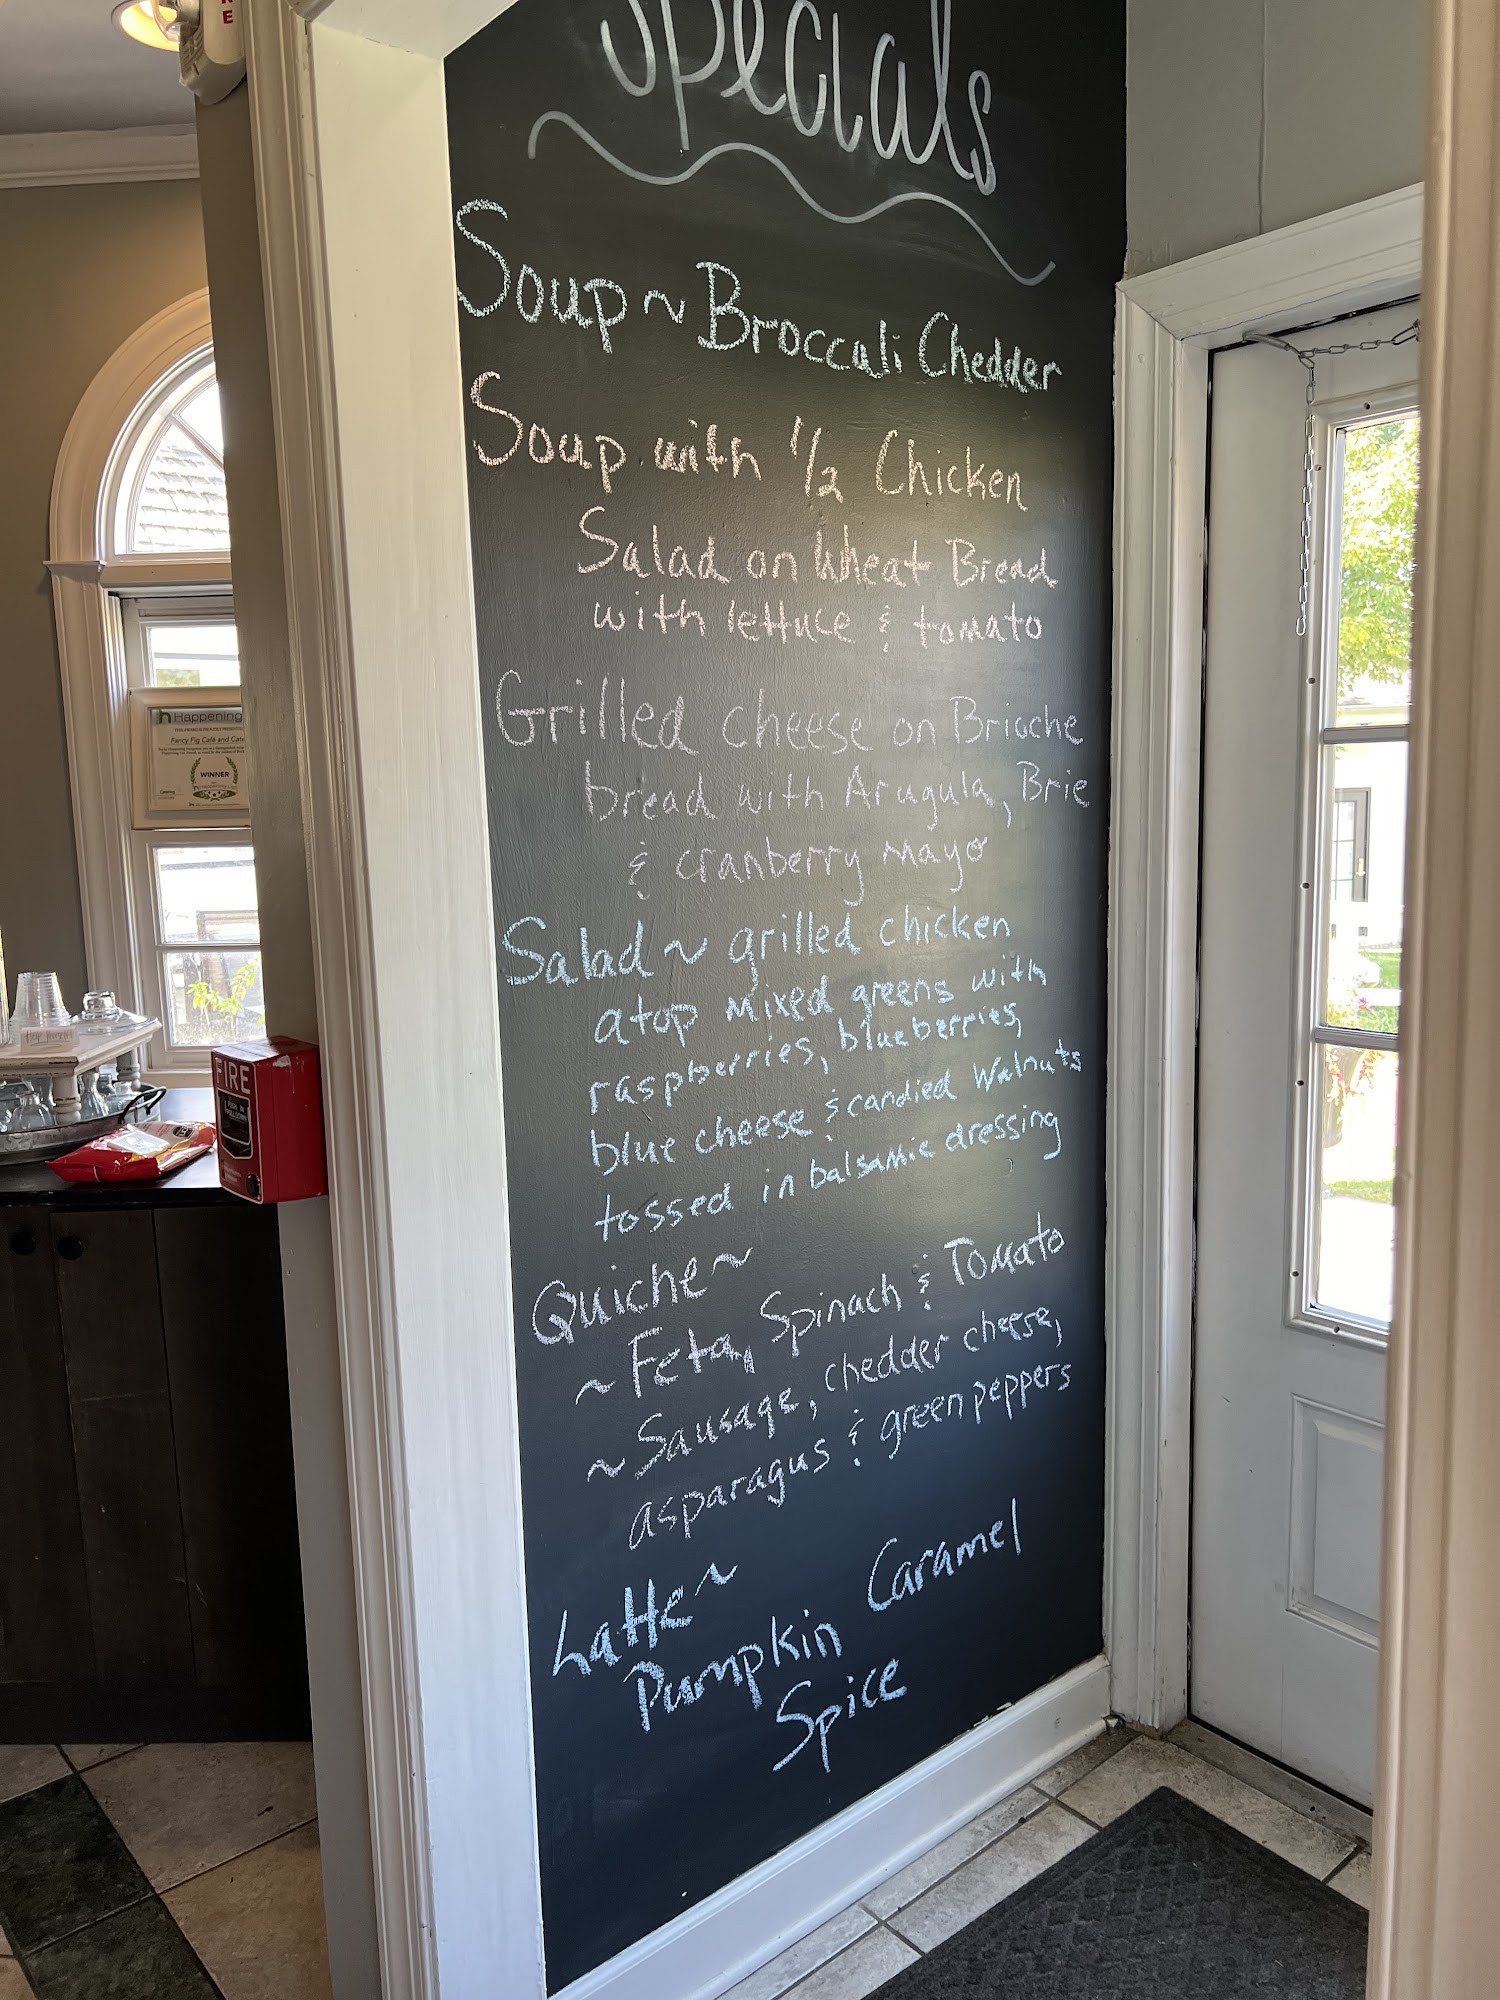 RE
specials
Soup ~ Broccali Chedder
Soup with 1/2 Chicken
Salad on Wheat Bread
with lettuce & tomato
Grilled cheese on Brioche
bread with Arugula, Brie
& cranberry mayo
Salad ~ grilled chicken
atop mixed greens with
raspberries, blueberries,
blue cheese & candied walnuts
tossed in balsamic dressing
Quiche ~
~ Feta, Spinach & Tomato
~ Sausage, chedder cheese,
asparagus & green peppers
Latte ~
Pumpkin Caramel
Spice
h Happening
Fancy Fig Café and Cate
WINNER
FIRE